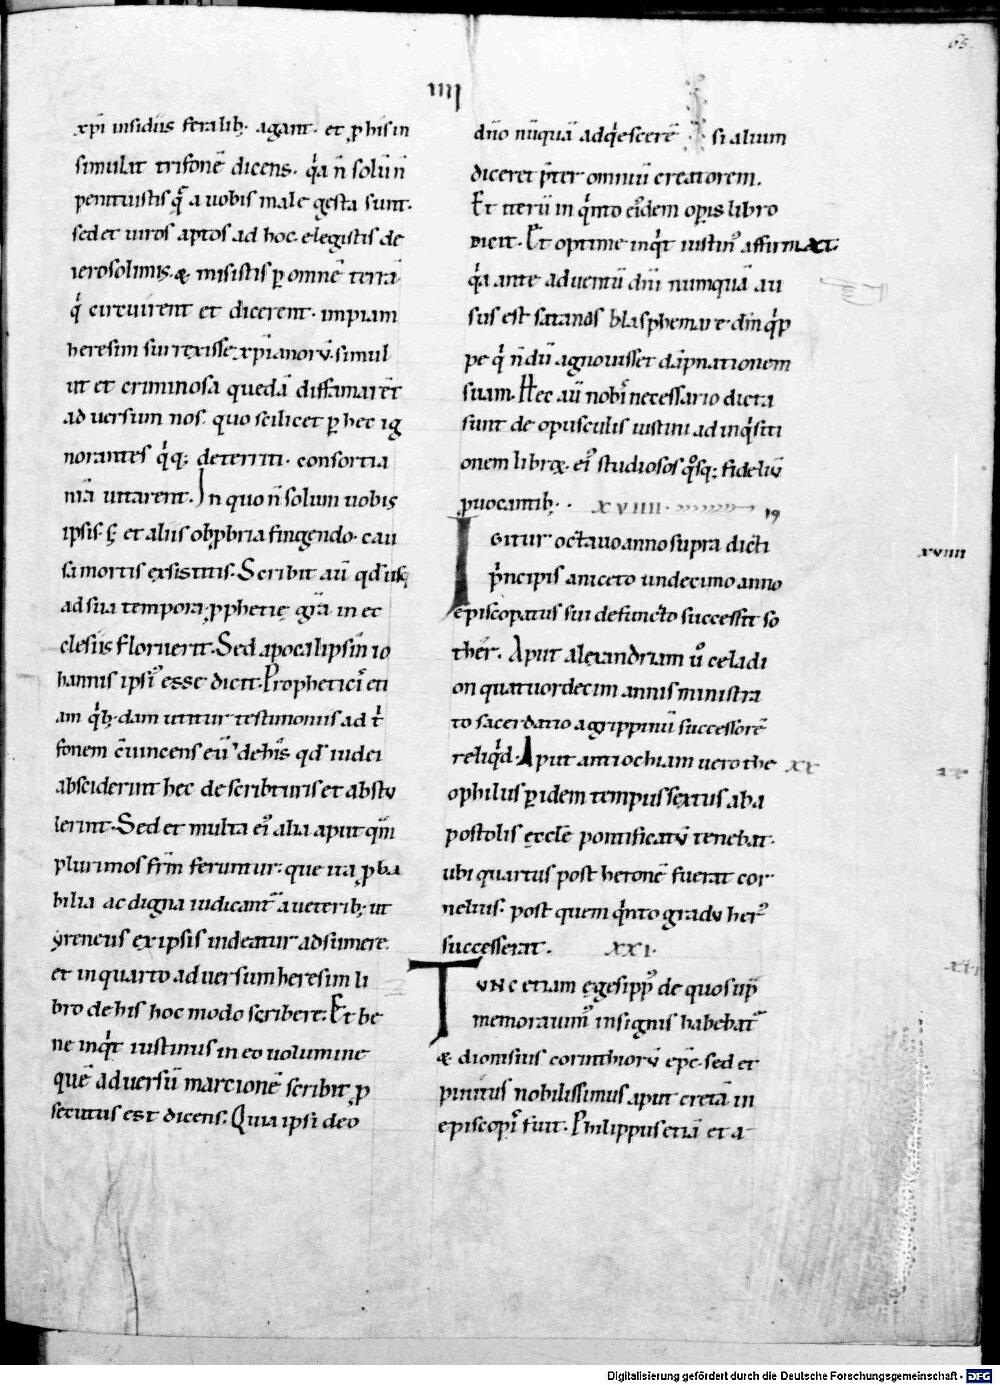 65.
IIII
xp̄i insidiis feralib; agant. et p his in
simulat trifonē dicens. qͥa n̄ solū n̄
penituistis q̄ a uobis male gesta sunt.
sed et uiros aptos ad hoc elegistis de
ierosolimis. & misistis p omnē terrā
qͥ circuirent et dicerent. impiam
heresim surrexisse xp̄ianorū. simul
ut et criminosa quedā diffamarēt
aduersum nos. quo scilicet p hec ig
norantes qͥq; deterriti. consortia
nr̄a uitarent. In quo n̄ solum uobis
ipsis. s; et aliis obp̱bria fingendo. cau
sa mortis exsistitis. Scribit aū qd̄ usq;
ad sua tempora p̱phetie gr̄a in ec
clesiis floruerit. Sed apocalipsin̄ io
hannis ipsi᾽ esse dicit. Propheticī eti
am qͥb; dam utitur testimoniis ad tͥ
fonem c̄uincens eū de hīs qd̄ iudei
absciderint hec de scribturis et abstu
lerint. Sed et multa ei᾽ alia aput qm̄
plurimos frm̄ feruntur. que ita p̱ba
bilia ac digna iudicant᷑ a ueterib; ut
yreneus ex ipsis uideatur adsumere.
et in quarto aduersum heresim li
bro de his hoc modo scribere. Et be
ne inqͥt iustinus in eo uolumine
quē aduersū marcionē scribit p̱
secutus est dicens. Quia ipsi deo
dn̄o nūquā adqͥescerē si alium
diceret p̄ter omniū creatorem.
Et iterū in qͥnto eiͥdem op̱is libro
dicit. Et optime inqͥt iustin᾽ affirmat.
qͥa ante aduentū dn̄i numquā au
sus est satanas blasphemare dm̄ qͥp
pe qͥ n̄dū agnouisset dāpnationem
suam. Hec aū nobͥ necessario dicta
sunt de opusculis iustini ad inqͥsiti
onem librꝝ. ei᾽ studiosos qͦsq; fideliū
p̱uocantib;. XVIIII. 19
Igitur octauo anno supra dicti
pͥncipis aniceto undecimo anno
xviiii
episcopatus sui defuncto successit so
ther. Aput alexandriam ū celadi
on quatuordecim annis ministra
to sacerdotio agrippinū successorē
reliqͥd. Aput antiochiam uero the XX
xx
ophilus p idem tempus sextus aba
postolis eccl̄e pontificatū tenebat.
ubi quartus post heronē fuerat cor
nelius. post quem qͥnto gradu her᾽
successerat. XXI.
xxi
Tunc etiam egesipp᾽ de quo sup̄
memorauim᾽ insignis habebat᷑
& dionisius corinthiorū ep̄c. sed et
pinitus nobilissimus aput cretā in
episcopͥ fuit. Philippus etiā et a
Digitalisierung gefördert durch die Deutsche Forschungsgemeinschaft - DFG